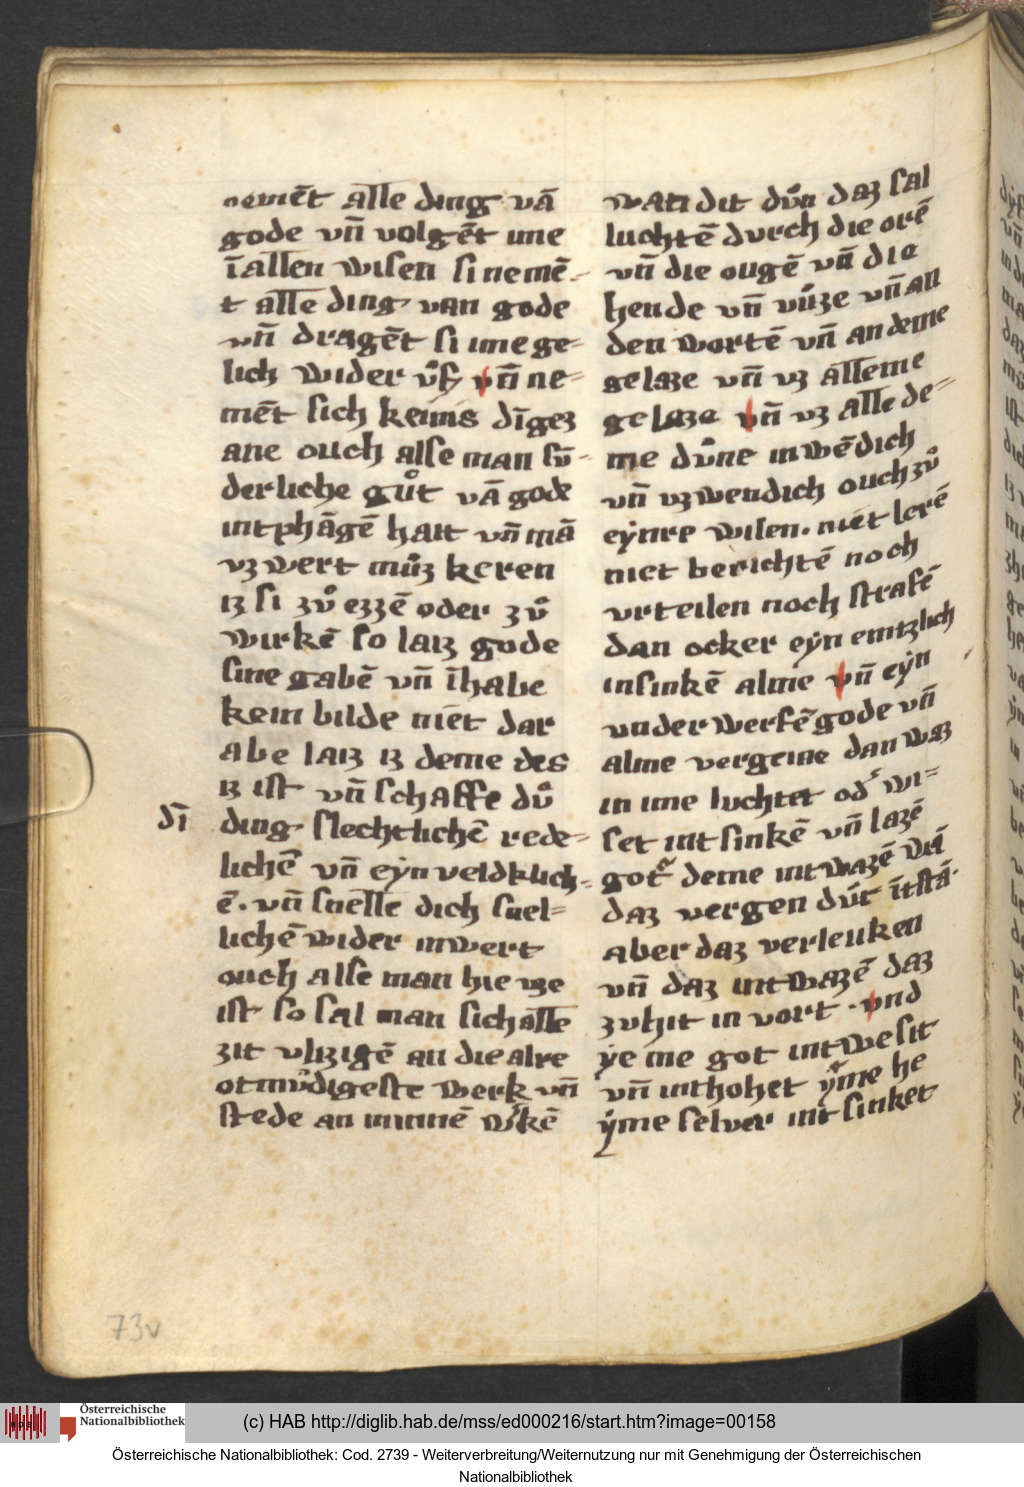 nemēt alle ding vā
gode vn̄ volgēt ime
ī allen wisen si nemē-
t alle ding van gode
vn̄ dragēt si ime ge-
lich wider vͦf vn̄ ne-
mēt sich keinis dīgez
ane ouch alse man sū-
derliche guͦt vā gode
intphāgē hait vn̄ mā
vz wert muͦz keren
iz si zvͦ ezzē oder zvͦ
wirkē so laiz gode
sine gabē vn̄ īhabe
kein bilde niet dar
abe laiz iz deme des
iz ist vn̄ schaffe dvͦ
dī
ding slechtlichē rede-
lichē vn̄ eyn veldklich-
ē. vn̄ snelle dich snel-
lichē wider inwert
ouch alse man hie
ist so sal man sich alle
zit vlizigē an die alre
otmvͦdigeste werk vn̄
stede an minnē wͥkē
wan dit dvͦn daz sal
luchtē dvrch die orē
vn̄ die ougē vn̄ die
hende vn̄ vuͦze vn̄ an
den wortē vn̄ an deme
gelaze vn̄ vz alleme
gelaze vn̄ vz alle de-
me dvͦne inwēdich
vn̄ vzwendich ouch zvͦ
eynre wisen. niet lerē
niet berichtē noch
vrteilen noch strafē
dan ocker eyn emtzlich
insinkē alme vn̄ eyn
vnderwerfē gode vn̄
alme vergeine dan waz
in ime luchtet od' wi-
set intsinkē vn̄ lazē
got deme intwazē
daz vergen dvͦt
aber daz verleuken
vn̄ daz intwazē daz
zuhit in vort. vnd
ye me got intwesit
vn̄ inthohet yme he
yme selver intsinket
73v
Österreichische
Nationalbibliothek
(c) HAB http://diglib.hab.de/mss/ed000216/start.htm?image=00158
Österreichische Nationalbibliothek: Cod. 2739 - Weiterverbreitung/Weiternutzung nur mit Genehmigung der Österreichischen
Nationalbibliothek